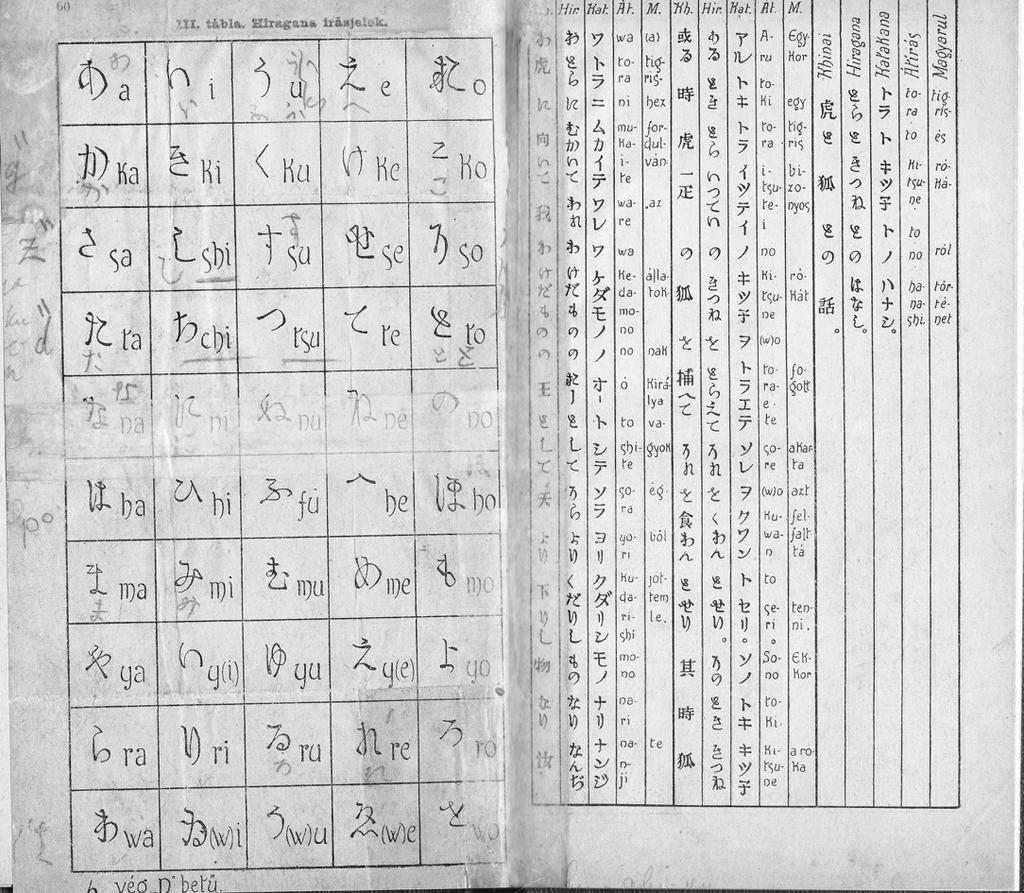 60
III. tábla. Hiragana írásjelek.
あ a い i う u え e お o
か ka き ki く ku け ke こ ko
さ sa し shi す su せ se そ so
た ta ち chi つ tsu て te と to
な na に ni ぬ nu ね ne の no
は ha ひ hi ふ fu へ he ほ ho
ま ma み mi む mu め me も mo
や ya い y(i) ゆ yu え y(e) よ yo
ら ra り ri る ru れ re ろ ro
わ wa ゐ (w)i う (w)u ゑ (w)e を wo
vég „n" betű.
Magyarul tigris- és róká- ról törté- net
Átírás to- ra to ki- tsu- ne to no ha- na- shi.
Katakana トラトキツ子トノハナシ。
Hiragana とらときつねとのはなし。
Khinai 虎と狐との話。
M. Egy- kor egy tig- ris bi- zo- nyos ró- kát fo- gott akar- ta azt fel- fal- tá ten- ni. Ek- kor a ró- ka
Át. A- ru to- ki to- ra i- tsu- te- i no ki- tsu- ne (w)o to- ra- e- te so- re (w)o ku- wa- n to se- ri. So- no to- ki ki- tsu- ne
Kat. アルトキトライツテイノキツ子ヲトラエテソレヲクワントセリ。ソノトキキツ子
Hir. あるときとらいつていのきつねをとらえてそれをくわんとせり。そのとききつね
Kh. 或る時虎一疋の狐を捕へてそれを食わんとせり其時狐
M. (a) tig- ris- hez for- dul- ván az álla- tok- nak kirá- lya va- gyok ég- ből jöt- tem le. te
Át. wa to- ra ni mu- ka- i- te wa- re wa ke- da- mo- no no ó to shi- te so- ra yo- ri ku- da- ri- shi mo- no na- ri na- n- ji
Kat. ワトラニムカイテワレワケダモノノオートシテソラヨリクダリシモノナリナンジ
Hir. わとらにむかいてわれわけだもののおーとしてそらよりくだりしものなりなんぢ
わ虎に向いて我わけだものの王として天より下りし物なり汝